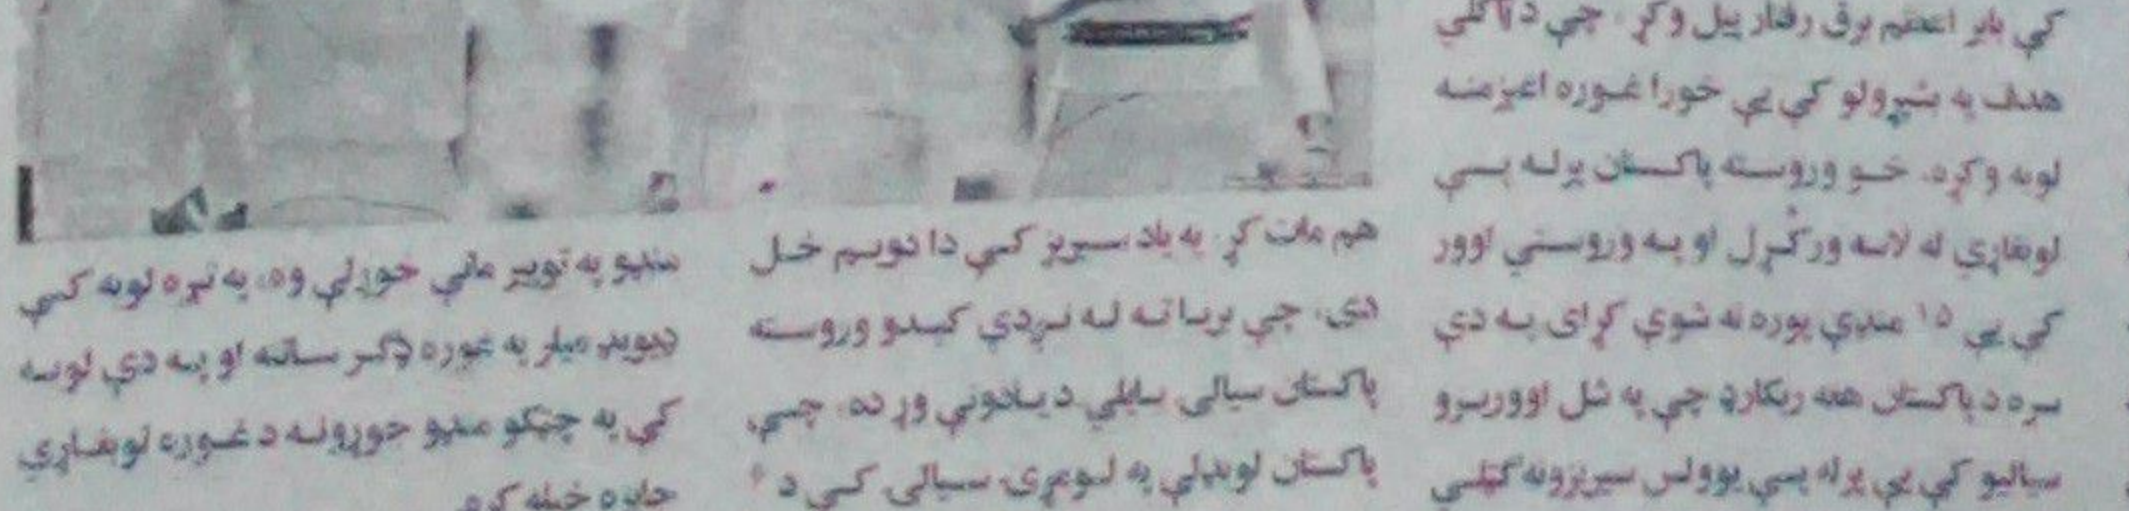 کې بابر اعظم برق رفتار پيل وکړ، چې د ټاکلي
هدف په شپړولو کې يې خورا غوره اغېزمنه
لوبه وکړه، خو وروسته پاکستان پرلـه پسې
لوبغاړي له لاسه ورکړل او په وروستي اوور
کې يې ۱۵ منډې پوره نه شوې کړای په دې
سره د پاکستان هغه ريکارډ چې په شل اووريزو
سياليو کې يې پرله پسې يوولس سيريزونه ګټلي
هم مات کړ. په ياد سيريز کې دا دويم ځل
دی، چې بريا ته له نږدې کېدو وروسته
پاکستان سيالي بايلي د يادونې وړ ده، چې
پاکستان لوبډلې په لومړۍ سيالۍ کې د ۶
منډو په توپير ماتې خوړلې وه، په نېره لوبه کې
ډيويډ ميلر په غوره ډګر ساتنه او په دې لوبه
کې په چټکو منډو جوړونه د غوره لوبغاړي
جايزه خپله کړه